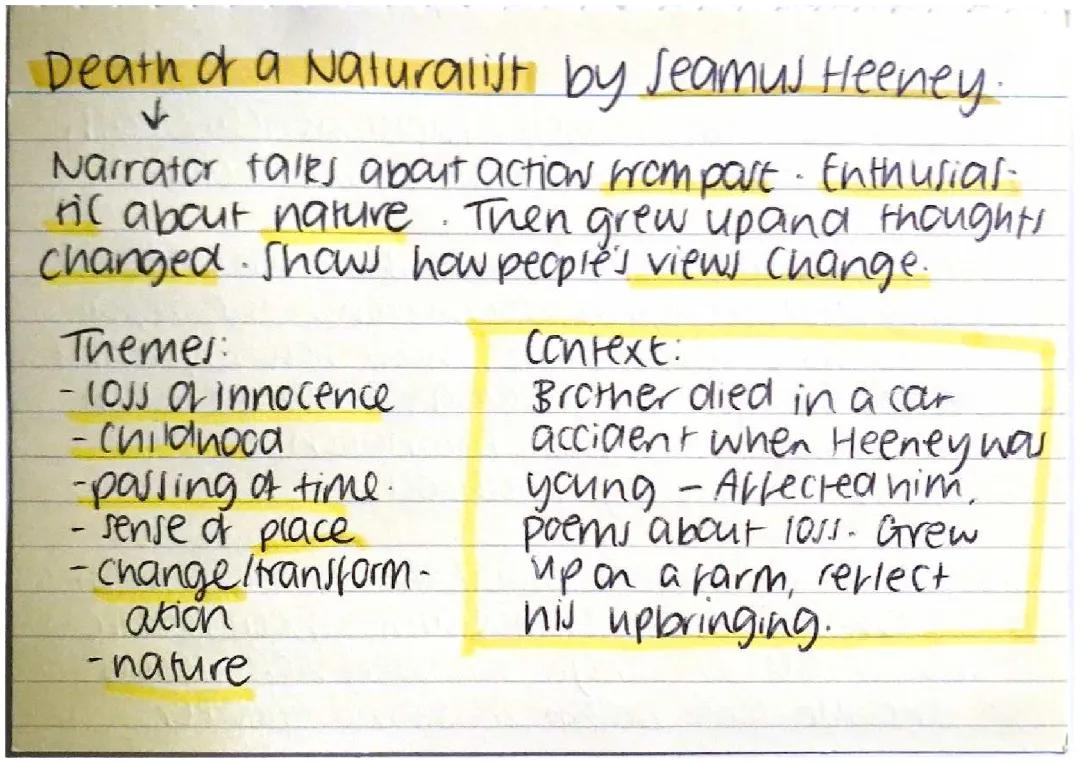 Death of a Naturalist by Seamus Heeney.
↓
Narrator talks about action from past. Enthusias-
tic about nature. Then grew up and thoughts
changed. Shows how people's views change.
Themes:
- loss of innocence
- childhood
- passing of time.
- sense of place
- change/transform-
ation
- nature
Context:
Brother died in a car
accident when Heeney was
young – Affected him,
poems about loss. Grew
up on a farm, reflect
his upbringing.